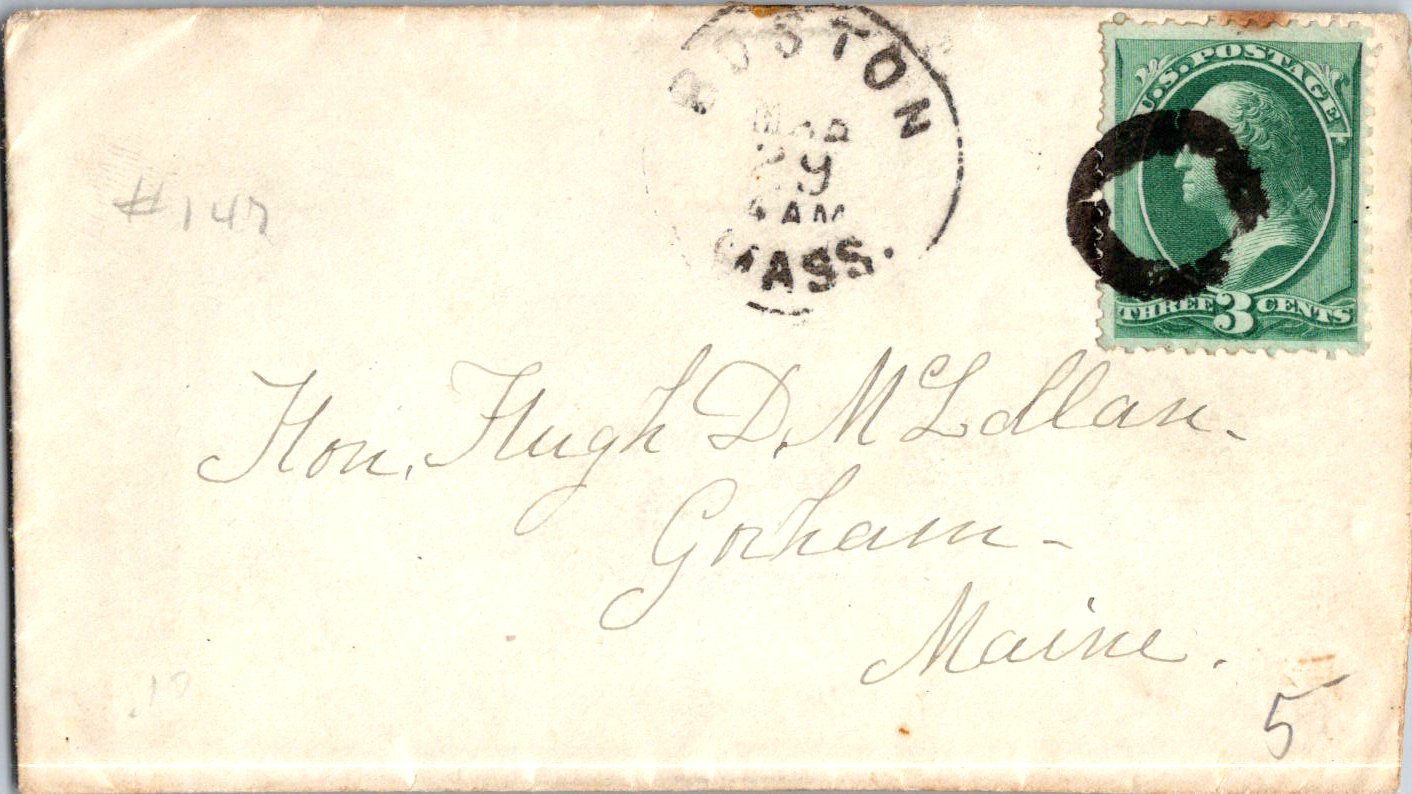 BOSTON
MAR
29
4 AM
MASS.
U.S. POSTAGE
THREE 3 CENTS
#147
Hon. Hugh D. McLellan.
Gorham -
Maine.
5